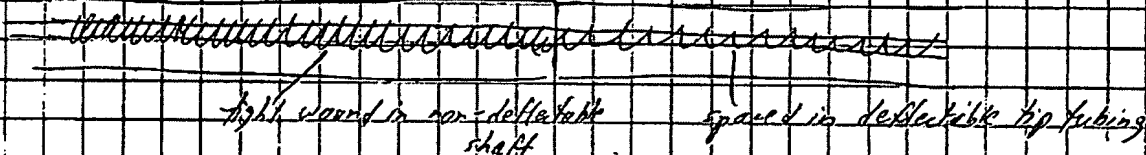 tight wound in non-deflectable spaced in deflectable tip tubing
shaft